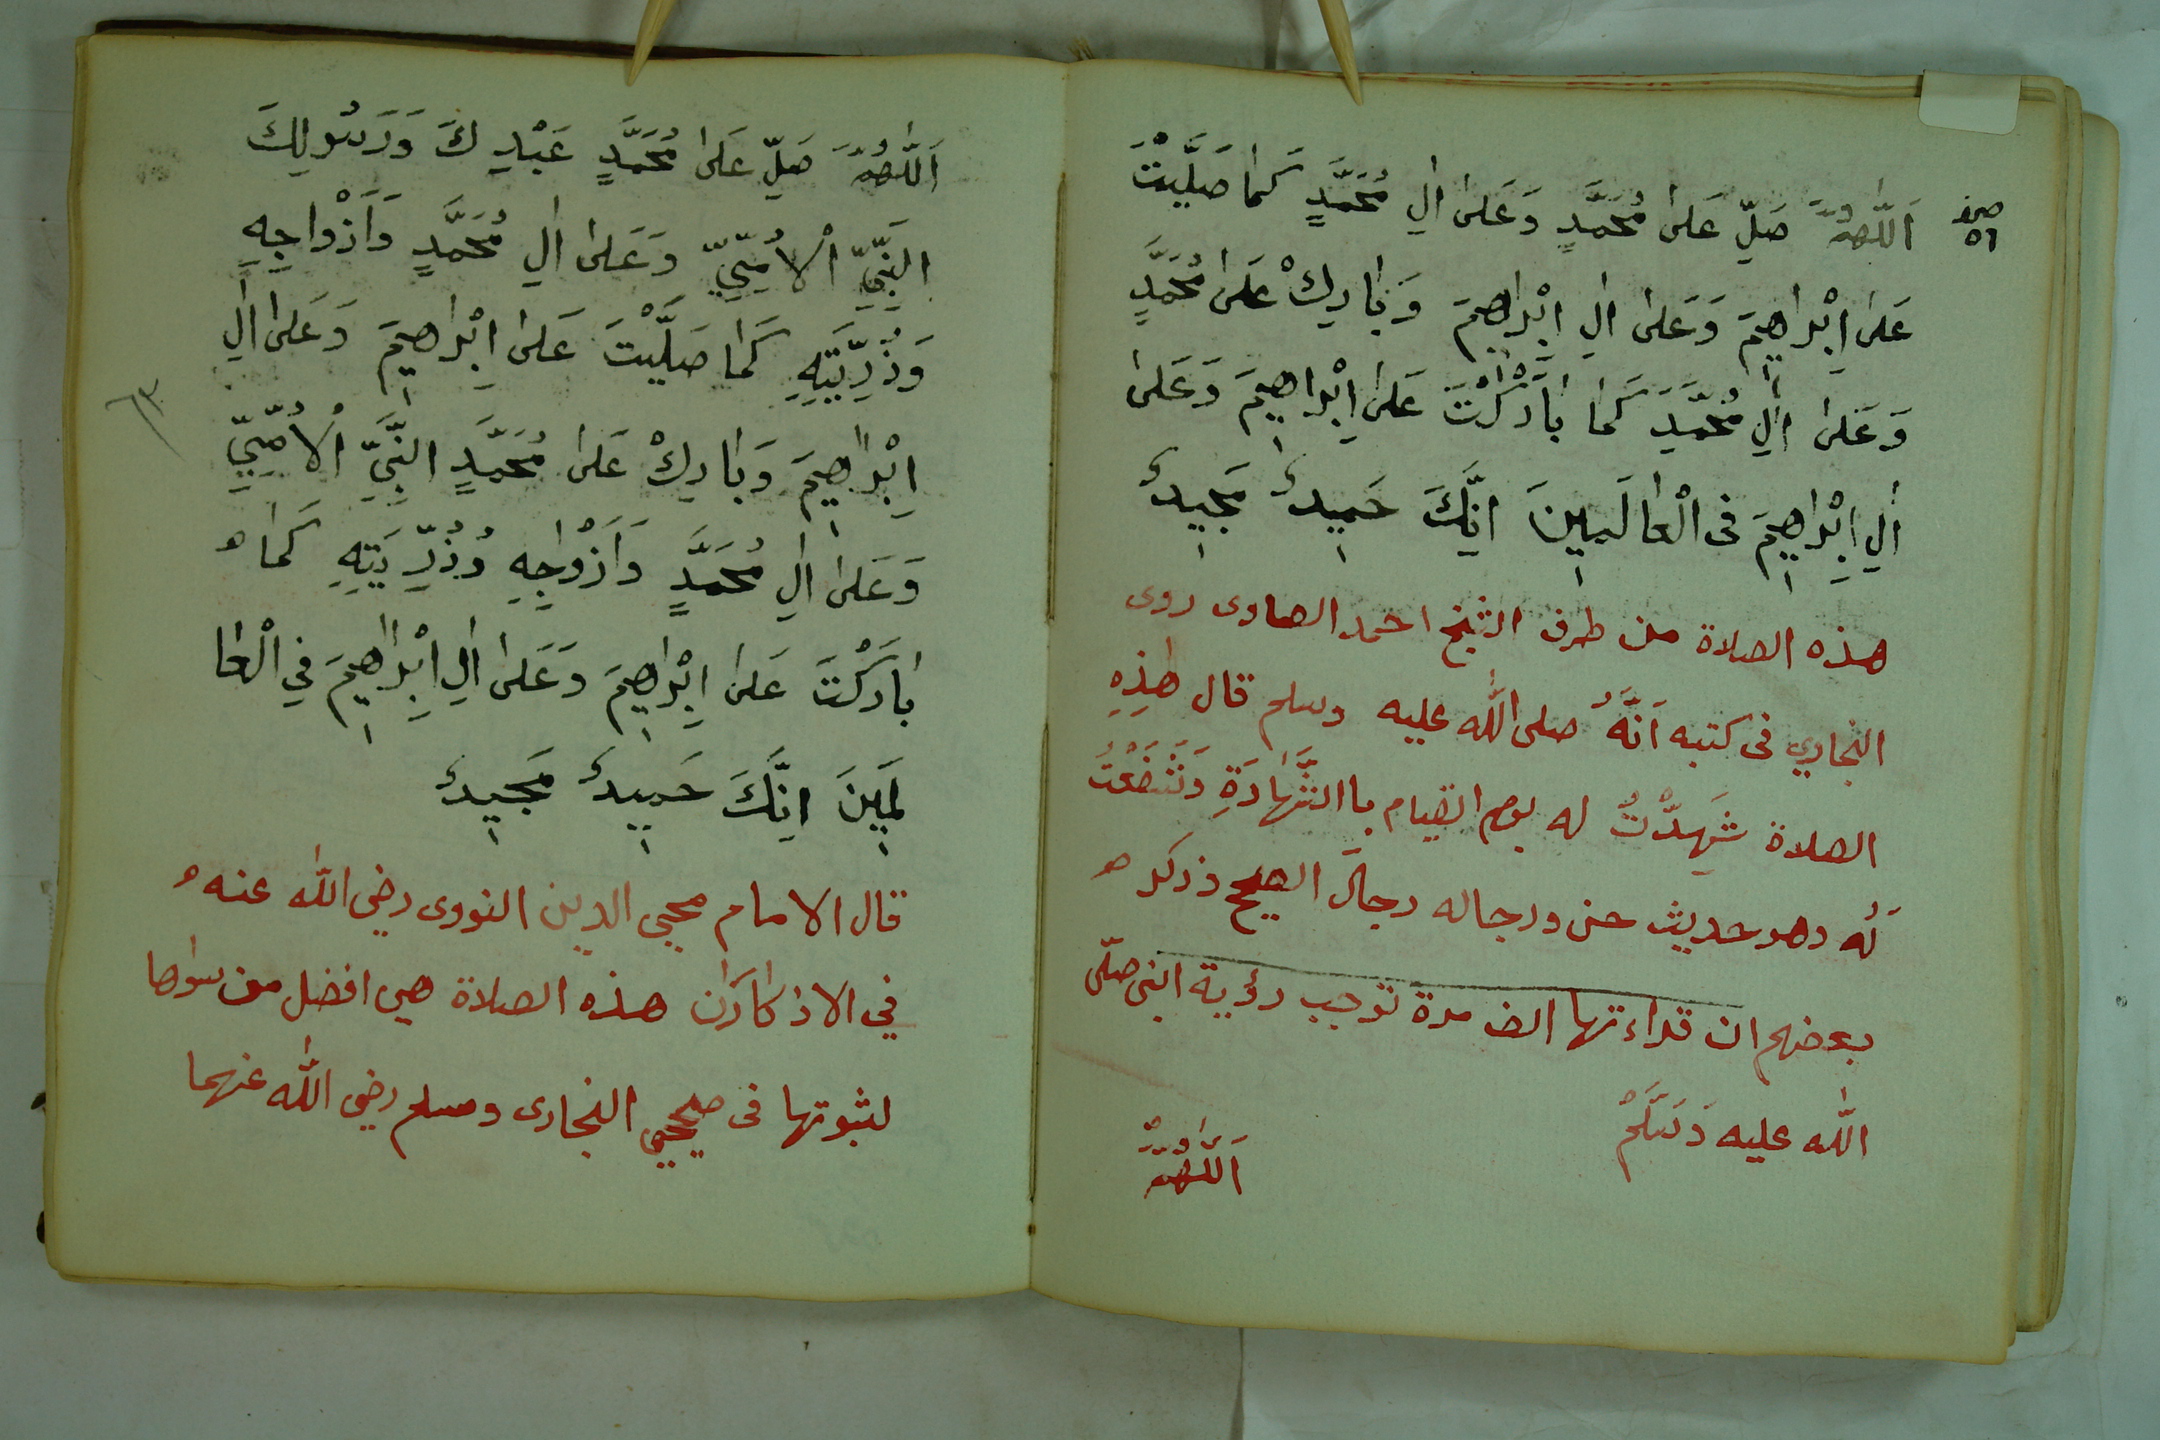 صحف
٥١
اَللّٰهُمَّ صَلِّ عَلىٰ مُحَمَّدٍ وَعَلىٰ اٰلِ مُحَمَّدٍ كَمٰا صَلَّيْتَ
عَلىٰ اِبْرٰاهِيمَ وَعَلىٰ اٰلِ اِبْرٰاهِيمَ وَبٰارِكْ عَلىٰ مُحَمَّدٍ
وَعَلىٰ اٰلِ مُحَمَّدَ كَمٰا بٰارَكْتَ عَلىٰ اِبْرٰاهِيمَ وَعَلىٰ
اٰلِ اِبْرٰاهِيمَ فى الْعٰالَمِينَ اِنَّكَ حَمِيدٌ مَجِيدٌ
هذه الصلاة من طرف الشيخ احمد الصاوى روى
البخاري فى كتبه اَنَّهُ صلى اللّٰه عليه وسلم قال هٰذِهِ
الصلاة شَهِدْتُ له يوم القيام باالشَّهٰادَةِ وَتَشَفَعْتُ
لَهُ وهو حديث حسن ورجاله رجال الصحيح وذكر
بعضهم ان قراءتها الف مرة توجب رؤية النبى صلّى
اللّٰه عليه وَسَلَّمْ
اَللّٰهُمَّ
اَللّٰهُمَّ صَلِّ عَلىٰ مُحَمَّدٍ عَبْدِكَ وَرَسُولِكَ
النَّبِيِّ الْاُمِّيِّ وَعَلىٰ اٰلِ مُحَمَّدٍ وَاَزْوٰاجِهِ
وَذُرِّيَّتِهِ كَمٰا صَلَّيْتَ عَلىٰ اِبْرٰاهِيمَ وَعَلىٰ اٰلِ
٦٣
اِبْرٰاهِيمَ وَبٰارِكْ عَلىٰ مُحَمَّدٍ النَّبِيِّ الْاُمِّيِّ
وَعَلىٰ اٰلِ مُحَمَّدٍ وَاَزْوٰاجِهِ وُذُرِّيَتِهِ كَمٰا
بٰارَكْتَ عَلىٰ اِبْرٰاهِيمَ وَعَلىٰ اٰلِ اِبْرٰاهِيمَ فِي الْعٰا
لَمِينَ اِنَّكَ حَمِيدٌ مَجِيدٌ
قال الامام محيي الدين النووى رضى اللّٰه عنه
في الاذكار ان هذه الصلاة هي افضل من سواها
لثبوتها فى صحيحي البخارى ومسلم رضى اللّٰه عنهما